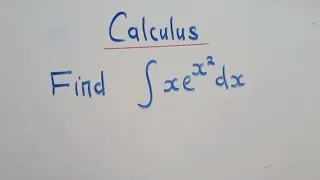 Calculus
Find ∫xe^{x^2}dx